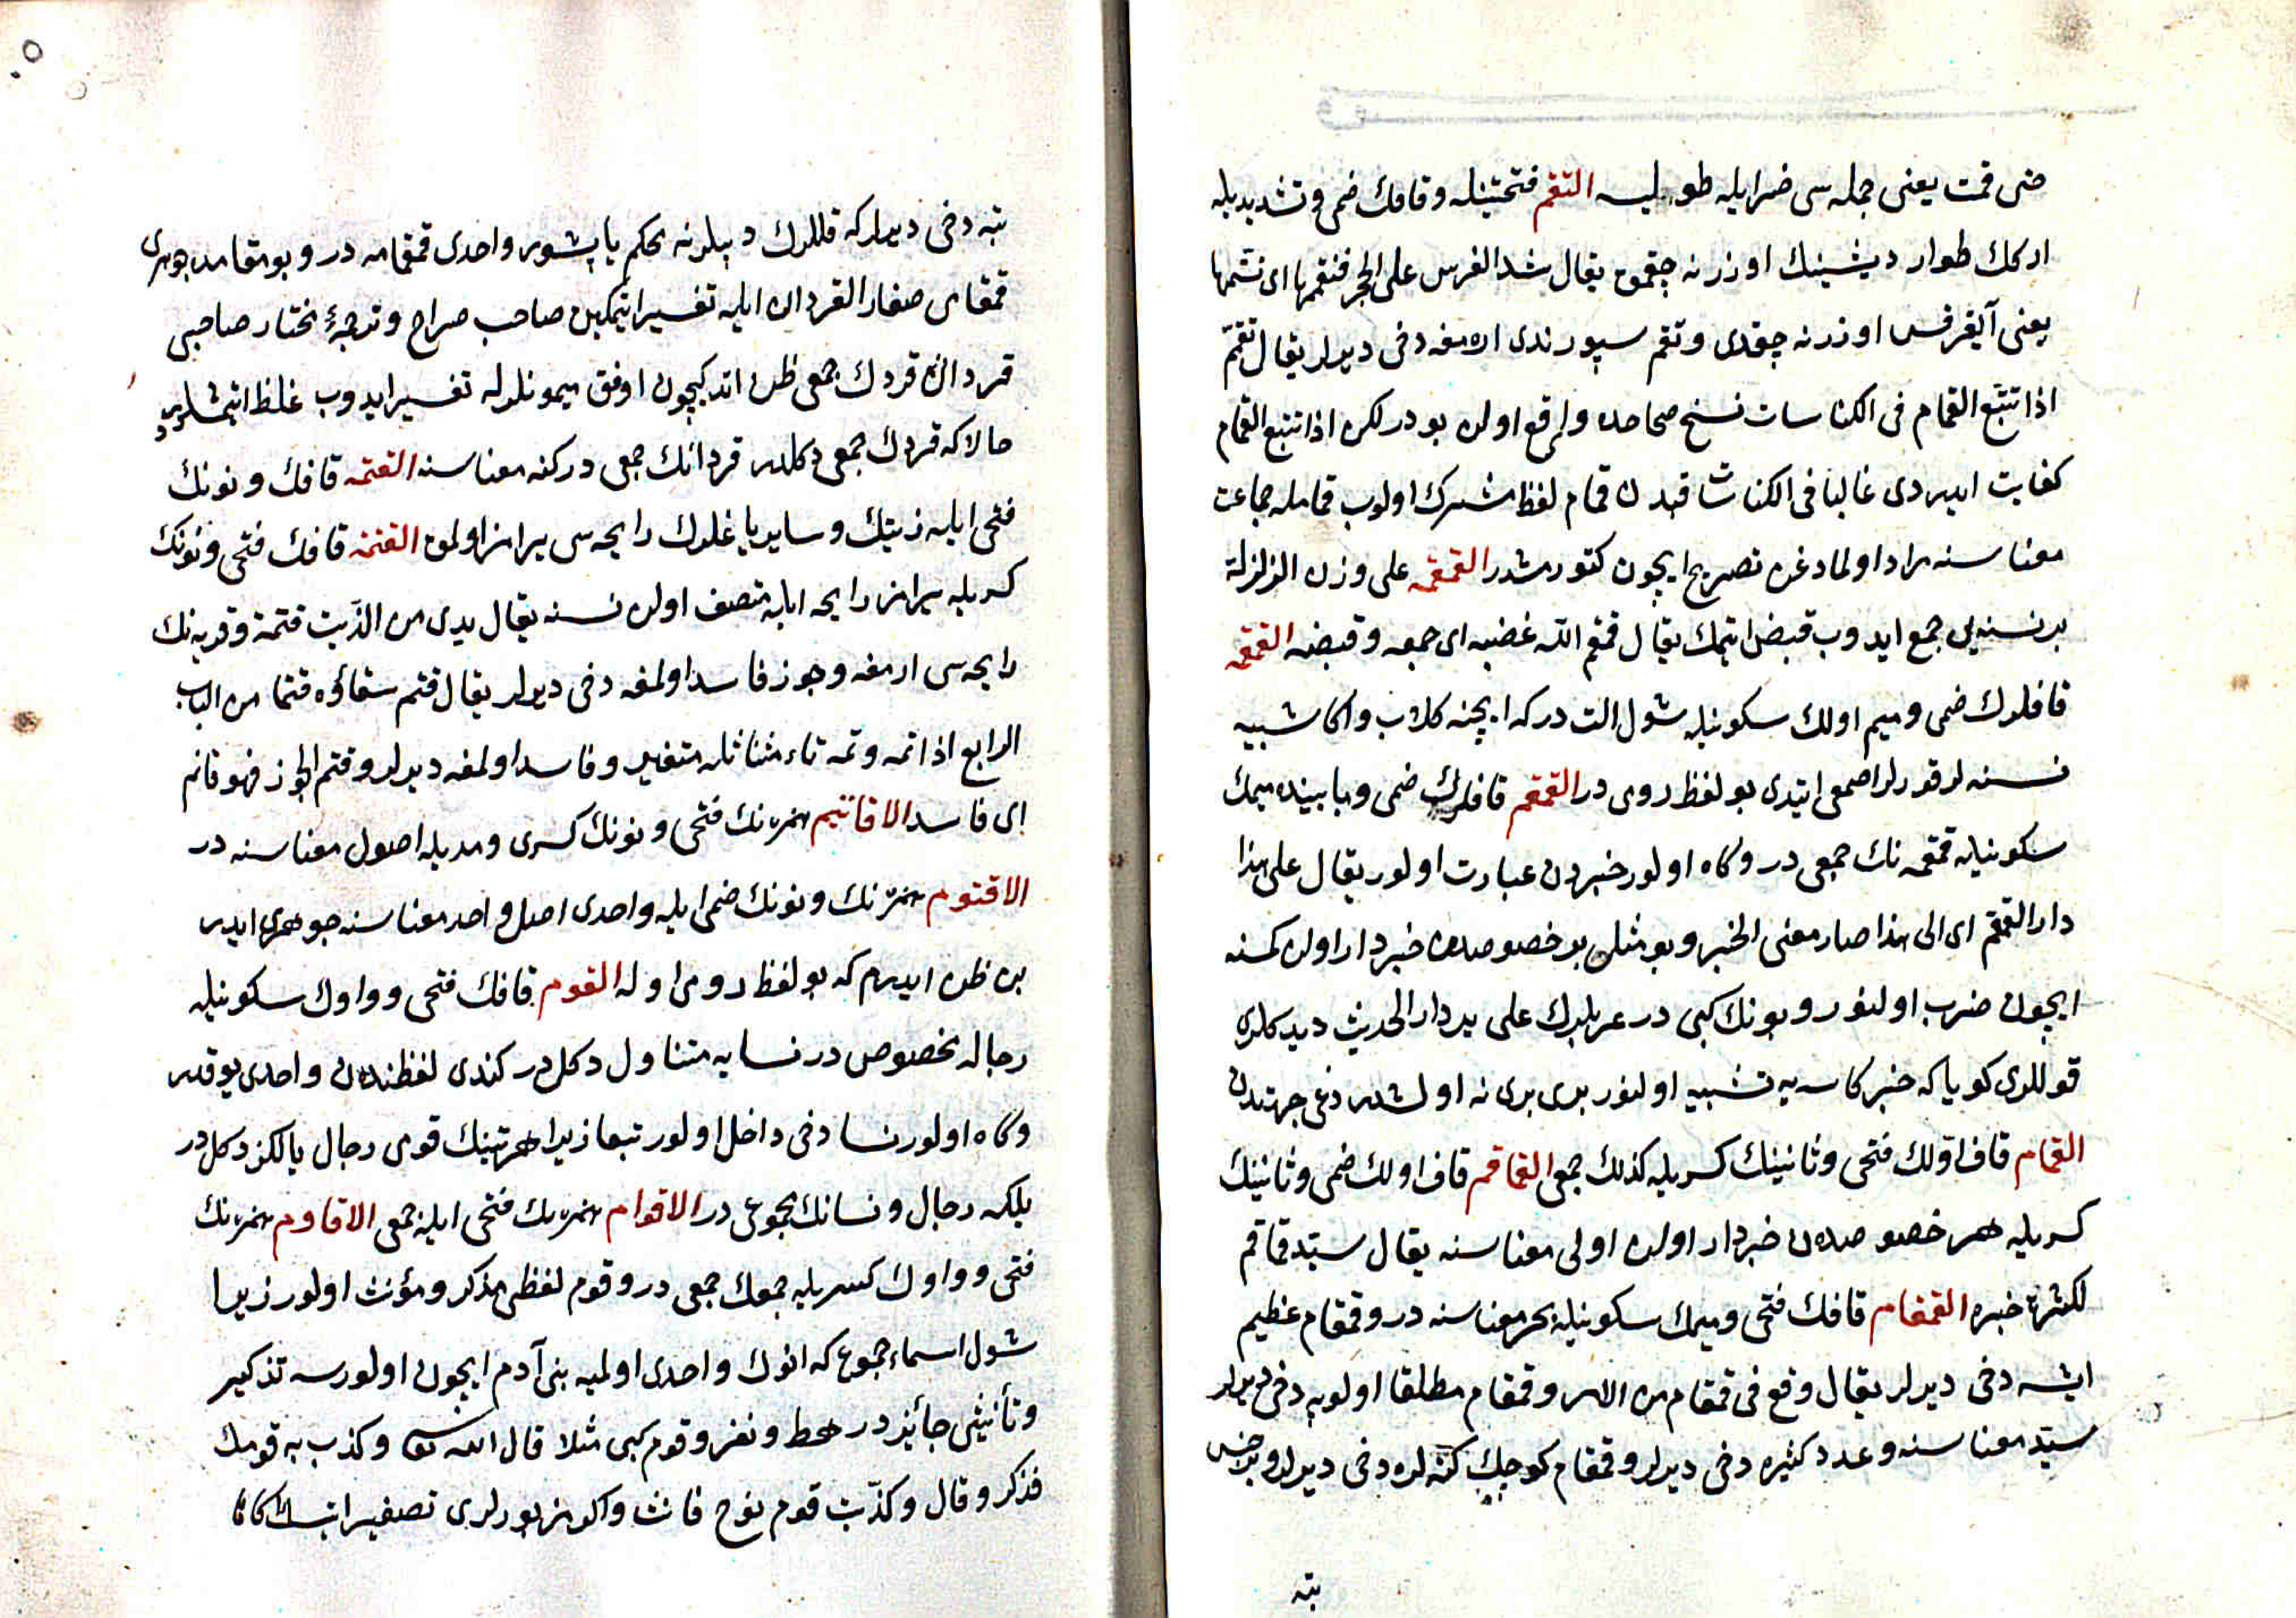 حتى قمت يعنى جمله سى ضرابله طوليه التقم فتحتينله و قافك ضمى و تشديديله
اركك طوار ديشينك اوزرنه چقمق يقال شد الفرس على الحجر فتقمها اى تسنمها
يعنى آيغر فرس اوزرنه چقدى و تقم سپورندى ارامغه دخى ديرلر يقال تقمم
اذا تتبع القمام فى الكناسات نسخ صحاحده واقع اولان بودر لكن اذا تتبع القمام
كفايت ايدردى غالبا فى الكناسات قيدن قمام لفظ مشترك اولوب قمامله جماعت
معناسنه مراد اولمادغن تصريح ايچون كتورمشدر القمقمه على وزن الزلزلة
بر نسنه يى جمع ايدوب قبض ايتمك يقال قمقم الله عصبه اى جمعه و قبضه القمقمه
قافلرك ضمى و ميم اولك سكونيله شول التدر كه ايچنه كلاب و اكا شبيه
نسنه لر قورلر اصمعى ايتدى بو لفظ رومى در القمقم قافلرك ضمى و مابينده ميمك
سكونيله قمقمه نك جمعى در و كاه اولور خبردن عبارت اولور يقال على هذا
دار القمقم اى الى هذا صار معنى الخبر و بو مثلى بر خصوصده خبردار اولان كمسنه
ايچون ضرب اولنور و بونك كبى در عربلرك على يد دار الحديث ديدكلرى
قوللرى كويا كه خبر كاسه يه تشبيه اولنور برى برينه اولشدرغى جهتدن
القمام قاف اولك فتحى و ثانينك كسريله كذلك جمعى القماقم قاف اولك ضمى و ثانينك
كسريله هر خصوصدن خبردار اولان اولى معناسنه يقال سيد قماقم
لكثرة خبره القمقام قافك فتحى و ميمك سكونيله بحر معناسنه در و قمقام عظيم
ايشه دخى ديرلر يقال وقع فى قمقام من الامر و قمقام مطلقا اولويه دخى ديرلر
سيد معناسنه و عدد كثيره دخى ديرلر و قمقام كوچك كنه لره دخى ديرلر و بر جنس
بته
بته دخى ديرلر كه قللرك ديبلرنه محكم ياپشور واحدى قمقامه در و بو مقامده جوهرى
قمقامى صغار القردان ايله تفسير ايتمكين صاحب صراح و ترجمۀ مختار صاحبى
قردانى قردك جمعى ظن اتدكيچون اوفق ميمونلرله تفسير ايدوب غلط ايتمشلردر
حالا كه قردك جمعى دكلدر قردانك جمعى در كنه معناسنه القنمه قافك و نونك
فتحى ايله زيتك و ساير ياغلرك رايحه سى يرامز اولمق القنمه قافك فتحى و نونك
كسريله يرامز رايحه ايله متصف اولان نسنه يقال يدى من الزيت قنمة و قربه نك
رايحه سى ارمغه و جوز فاسد اولمغه دخى ديرلر يقال قنم سقاؤه قنما من الباب
الرابع اذا تمه و تمه تاء مثناتله متغير و فاسد اولمغه ديرلر و قنم الجوز فهو قانم
اى فاسد الاقانيم همزه نك فتحى و نونك كسرى و مديله اصول معناسنه در
الاقنوم همزه نك و نونك ضمى ايله واحدى اصل واحد معناسنه جوهرى ايدر
بن ظن ايدرم كه بو لفظ رومى اوله القوم قافك فتحى و واوك سكونيله
رجاله مخصوص در نسايه متناول دكل در كندى لفظندن واحدى يوقدر
و كاه اولور نسا دخى داخل اولور تبعا زيرا هر نبينك قومى رجال يالكز دكل در
بلكه رجال و نسانك مجموعى در الاقوام همزه نك فتحى ايله جمعى الاقاوم همزه نك
فتحى و واوك كسريله جمعك جمعى در و قوم لفظى مذكر و مؤنث اولور زيرا
شول اسماء جموع كه انوك واحدى اولميه بنى آدم ايچون اولورسه تذكير
و تأنيثى جائزدر رهط و نفر و قوم كبى مثلا قال الله تعالى و كذب به قومك
فذكر و قال و كذبت قوم نوح فانث و اكر بونلرى تصغير ايتسك